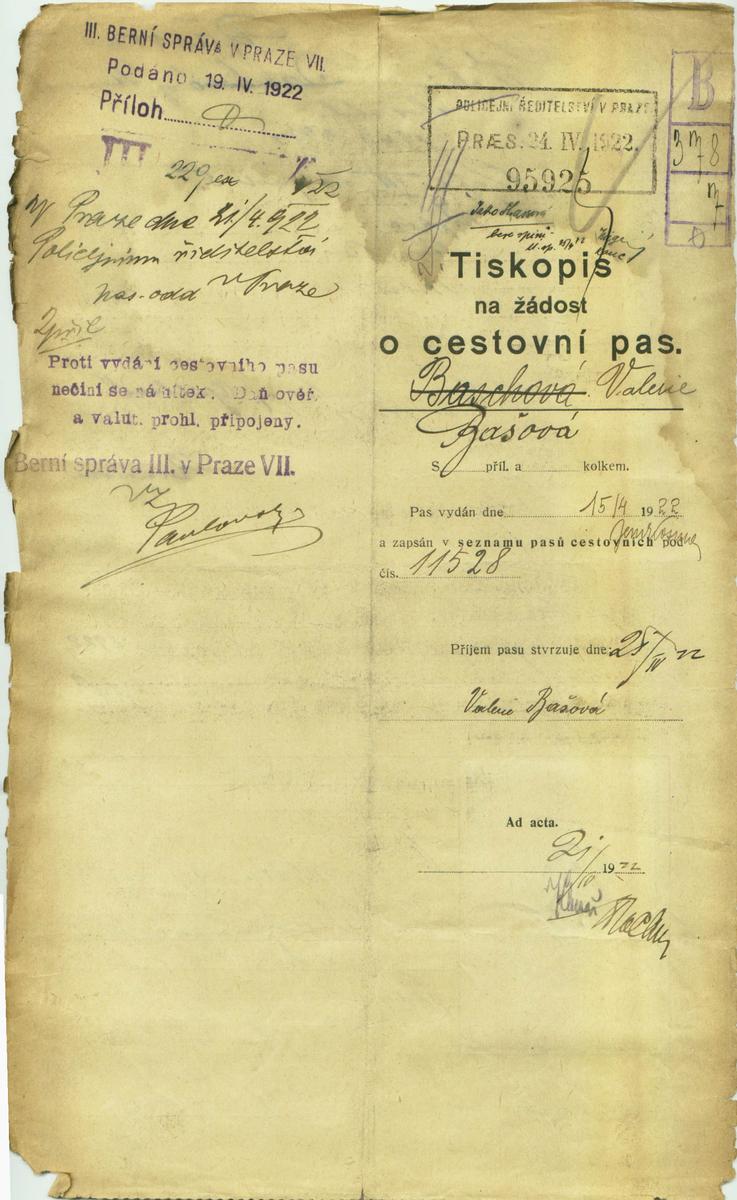 III. BERNÍ SPRÁVA V PRAZE VII.
Podáno 19. IV. 1922
Příloh
III
229
V Praze dne 21/4.922
Policejnímu ředitelství
pas. odd v Praze
2 příl
Proti vydání cestovního pasu
nečiní se námitek. Daň ověř.
a valut. prohl. připojeny.
Berní správa III. v Praze VII.
POLICEJNÍ ŘEDITELSTVÍ V PRAZE
PRÆS. 24. IV. 1922.
95925
B
378
Tiskopis
na žádost
o cestovní pas.
Baschová Valerie
Bašová
S příl. a kolkem.
Pas vydán dne 15/4 1922
a zapsán v seznamu pasů cestovních pod
čís. 11528
Příjem pasu stvrzuje dne: 25/IV 22
Valerie Bašová
Ad acta.
21/IV 1922